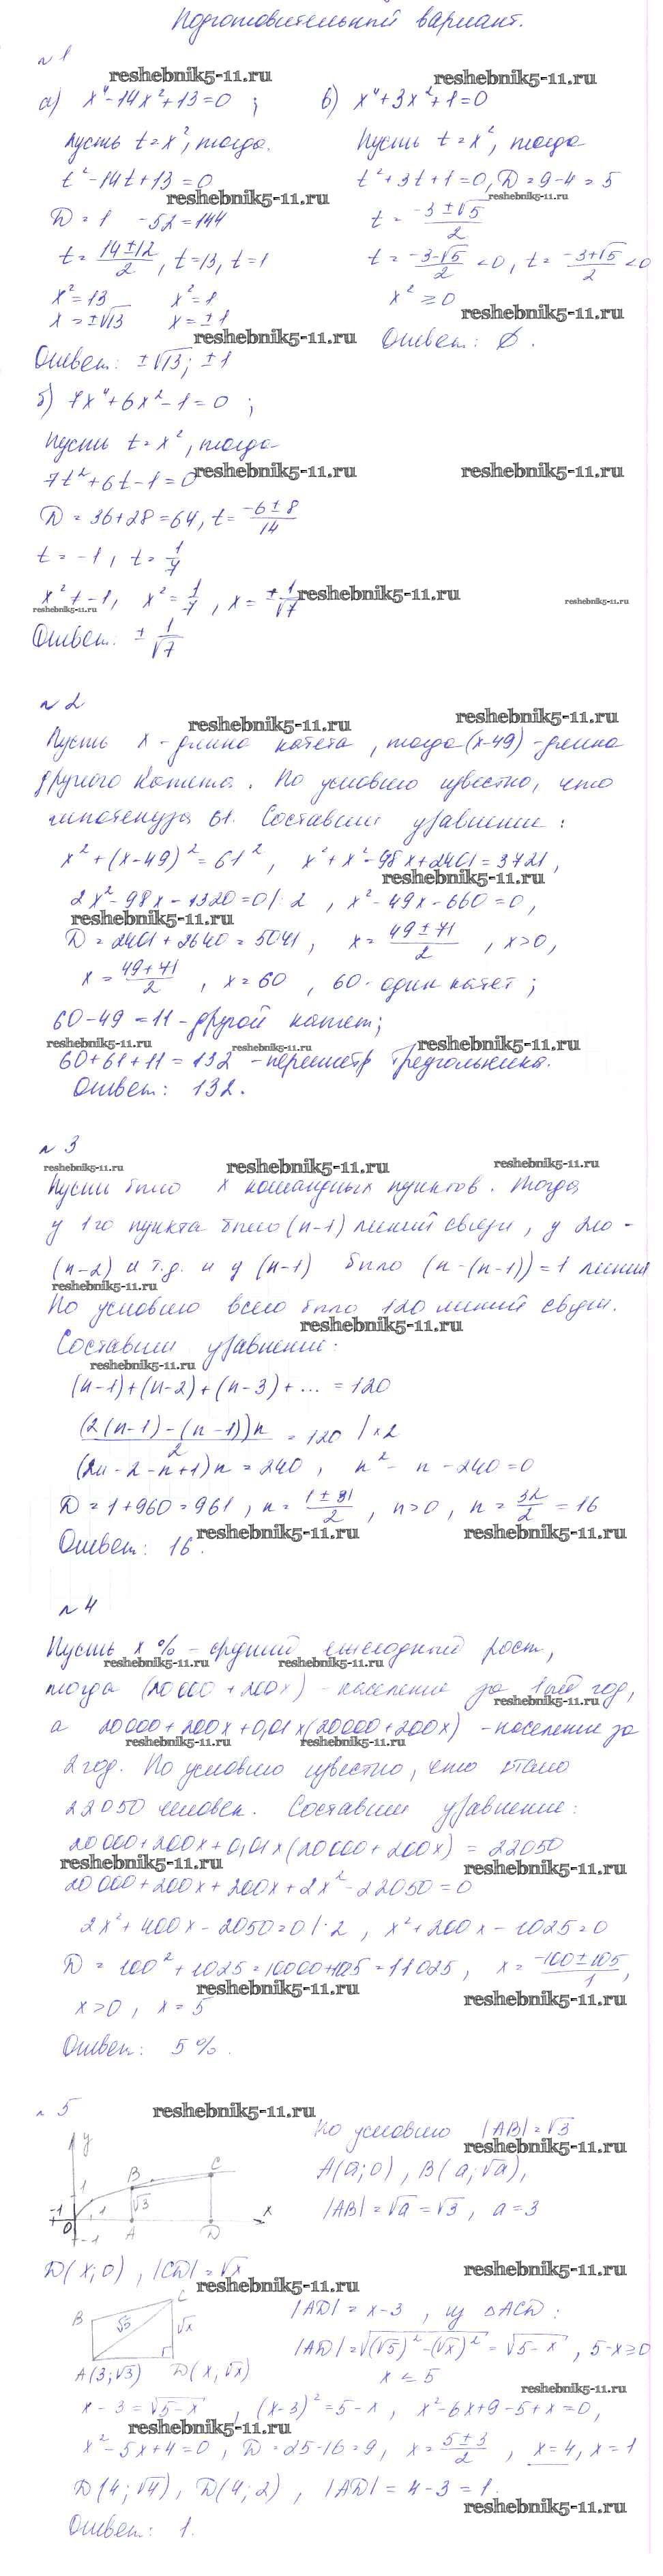 Подготовительный вариант.
№1
reshebnik5-11.ru reshebnik5-11.ru
а) x⁴-14x²+13=0 ; в) x⁴+3x²+1=0
Пусть t=x², тогда. Пусть t=x², тогда
t²-14t+13=0 t²+3t+1=0, D=9-4=5
reshebnik5-11.ru reshebnik5-11.ru
D=1 -52=144 t= (-3±√5)/2
t= (14±12)/2, t=13, t=1 t= (-3-√5)/2 <0, t= (-3+√5)/2 <0
x²=13 x²=1 x²≥0
x=±√13 x=±1
reshebnik5-11.ru
reshebnik5-11.ru Ответ: ∅.
Ответ: ±√13; ±1
б) 7x⁴+6x²-1=0 ;
Пусть t=x², тогда
7t²+6t-1=0 reshebnik5-11.ru reshebnik5-11.ru
D=36+28=64, t= (-6±8)/14
t=-1, t= 1/7
x²≠-1, x²= 1/7, x= ±1/√7 reshebnik5-11.ru
reshebnik5-11.ru reshebnik5-11.ru
Ответ: ± 1/√7
№2
reshebnik5-11.ru reshebnik5-11.ru
Пусть x - длина катета, тогда (x-49) - длина
другого катета. По условию известно, что
гипотенуза 61. Составим уравнение:
x²+(x-49)²=61², x²+x²-98x+2401=3721,
reshebnik5-11.ru
2x²-98x-1320=0 |:2, x²-49x-660=0,
reshebnik5-11.ru
D=2401+2640=5041, x= (49±71)/2, x>0,
x= (49+71)/2, x=60, 60- один катет;
60-49=11 - другой катет;
reshebnik5-11.ru reshebnik5-11.ru reshebnik5-11.ru
60+61+11=132 - периметр треугольника.
Ответ: 132.
№3
reshebnik5-11.ru reshebnik5-11.ru reshebnik5-11.ru
Пусть было x командных пунктов. Тогда
у 1го пункта было (n-1) линий связи, у 2го -
(n-2) и т.д. и у (n-1) было (n-(n-1))=1 линия
reshebnik5-11.ru
По условию всего было 120 линий связи.
reshebnik5-11.ru
Составим уравнение:
reshebnik5-11.ru
(n-1)+(n-2)+(n-3)+... =120
(2(n-1)-(n-1))n/2 =120 |×2
(2n-2-n+1)n=240, n²-n-240=0
D=1+960=961, n= (1±31)/2, n>0, n= 32/2 =16
reshebnik5-11.ru reshebnik5-11.ru
Ответ: 16.
№4
Пусть x% - средний ежегодный рост,
reshebnik5-11.ru reshebnik5-11.ru
тогда (20000+200x) - население за 1ый год,
reshebnik5-11.ru
а 20000+200x+0,01x(20000+200x) - население за
reshebnik5-11.ru reshebnik5-11.ru
2 год. По условию известно, что стало
22050 человек. Составим уравнение:
20000+200x+0,01x(20000+200x)=22050
reshebnik5-11.ru reshebnik5-11.ru
20000+200x+200x+2x²-22050=0
2x²+400x-2050=0 |:2, x²+200x-1025=0
D=100²+1025=10000+1025=11025, x= (-100±105)/1,
reshebnik5-11.ru reshebnik5-11.ru
x>0, x=5
Ответ: 5%.
№5 reshebnik5-11.ru
По условию |AB|=√3
reshebnik5-11.ru
A(a;0), B(a;√a),
|AB|=√a=√3, a=3
y
1
B C
√3
-1 0 1 A D x
-1
D(x;0), |CD|=√x reshebnik5-11.ru
reshebnik5-11.ru
|AD|=x-3, из △ACD:
B C
√5 √x
|AD|=√((√5)²-(√x)²)=√(5-x), 5-x≥0
A(3;√3) D(x,√x) x≤5
reshebnik5-11.ru
x-3=√(5-x), (x-3)²=5-x, x²-6x+9-5+x=0,
reshebnik5-11.ru
x²-5x+4=0, D=25-16=9, x= (5±3)/2, x=4, x=1
D(4;√4), D(4;2), |AD|=4-3=1.
reshebnik5-11.ru
Ответ: 1.